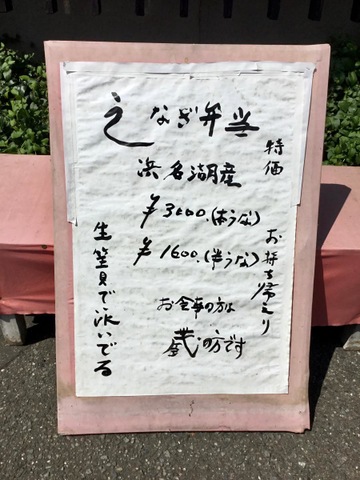 特価 お持ち帰り
うなぎ弁当
浜名湖産
¥3000.(本うな)
¥1600.(半うな)
お食事の方は
の方です
生簀で泳いでる